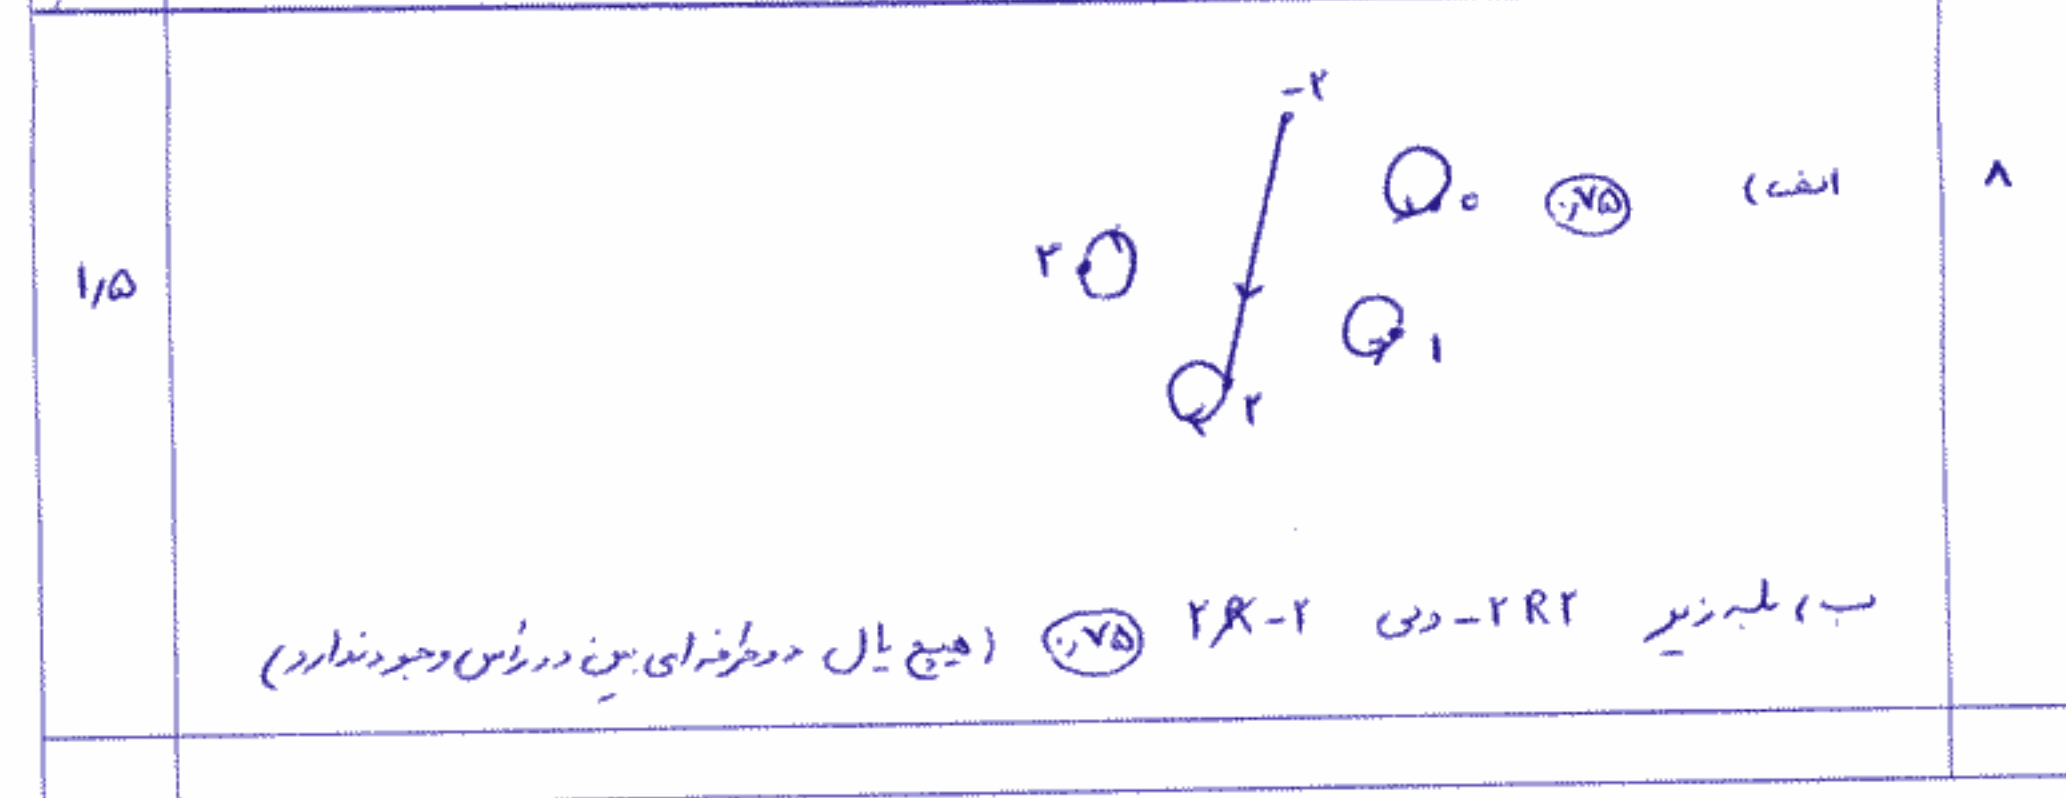 -۲
۸ الف) ۰٫۷۵ ۰
۳
۱٫۵ ۱
۲
ب) بله زیرا -۲R۲ ولی ۲R̸-۲ ۰٫۷۵ (هیچ یال دوطرفه‌ای بین دو رأس وجود ندارد)